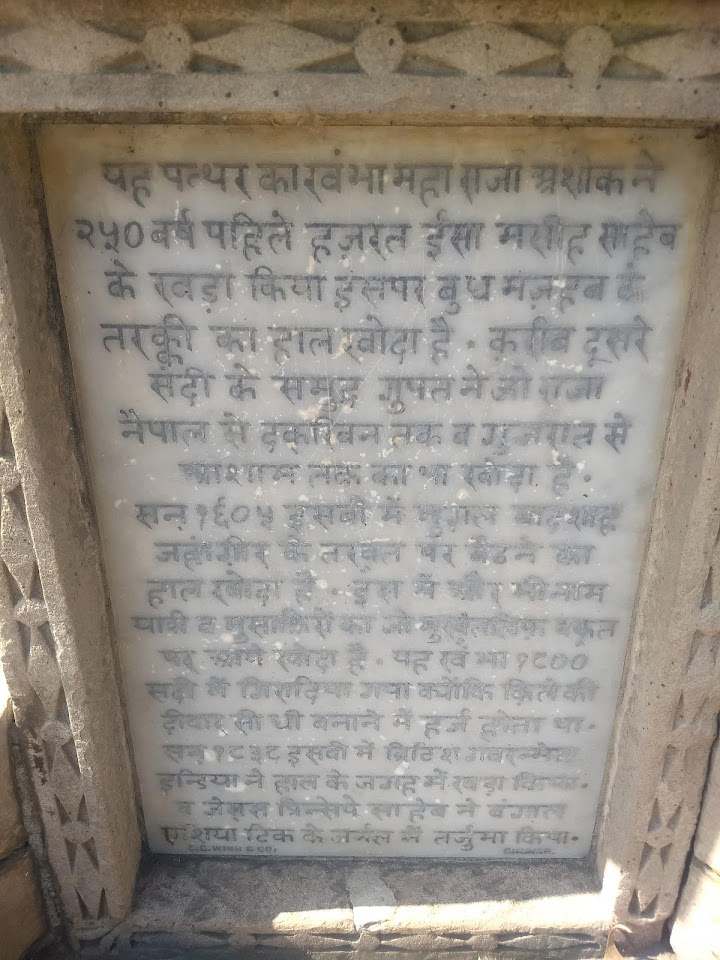 यह पत्थर का खंभा महा राजा अशोक ने
२५० बर्ष पहिले हज़रत ईसा मसीह साहेब
के खड़ा किया इसपर बुध मज़हब के
तरक़्क़ी का हाल खोदा है. क़रीब दूसरे
संदी के समुद्र गुपत ने जो राजा
नैपाल से दक्खिन तक व गुजरात से
आशाम तक का था खोदा है.
सन १६०५ इसवी में मुग़ल बादशाह
जहांगीर के तख़्त पर बैठने का
हाल खोदा है. इस में और भी नाम
यात्री व मुसाफ़िरों का जो मुख़्तलिफ़ वक़्त
पर आये खोदा है. यह खंभा १८००
सदी में गिरादिया गया क्योंकि क़िले की
दीवार सीधी बनाने में हर्ज होता था.
सन १८३८ इसवी में ब्रिटिश गवरन्मेन्ट
इन्डिया ने हाल के जगह में खड़ा किया.
व जेमस प्रिन्सेप साहेब ने बंगाल
एशिया टिक के जर्नल में तर्जुमा किया.